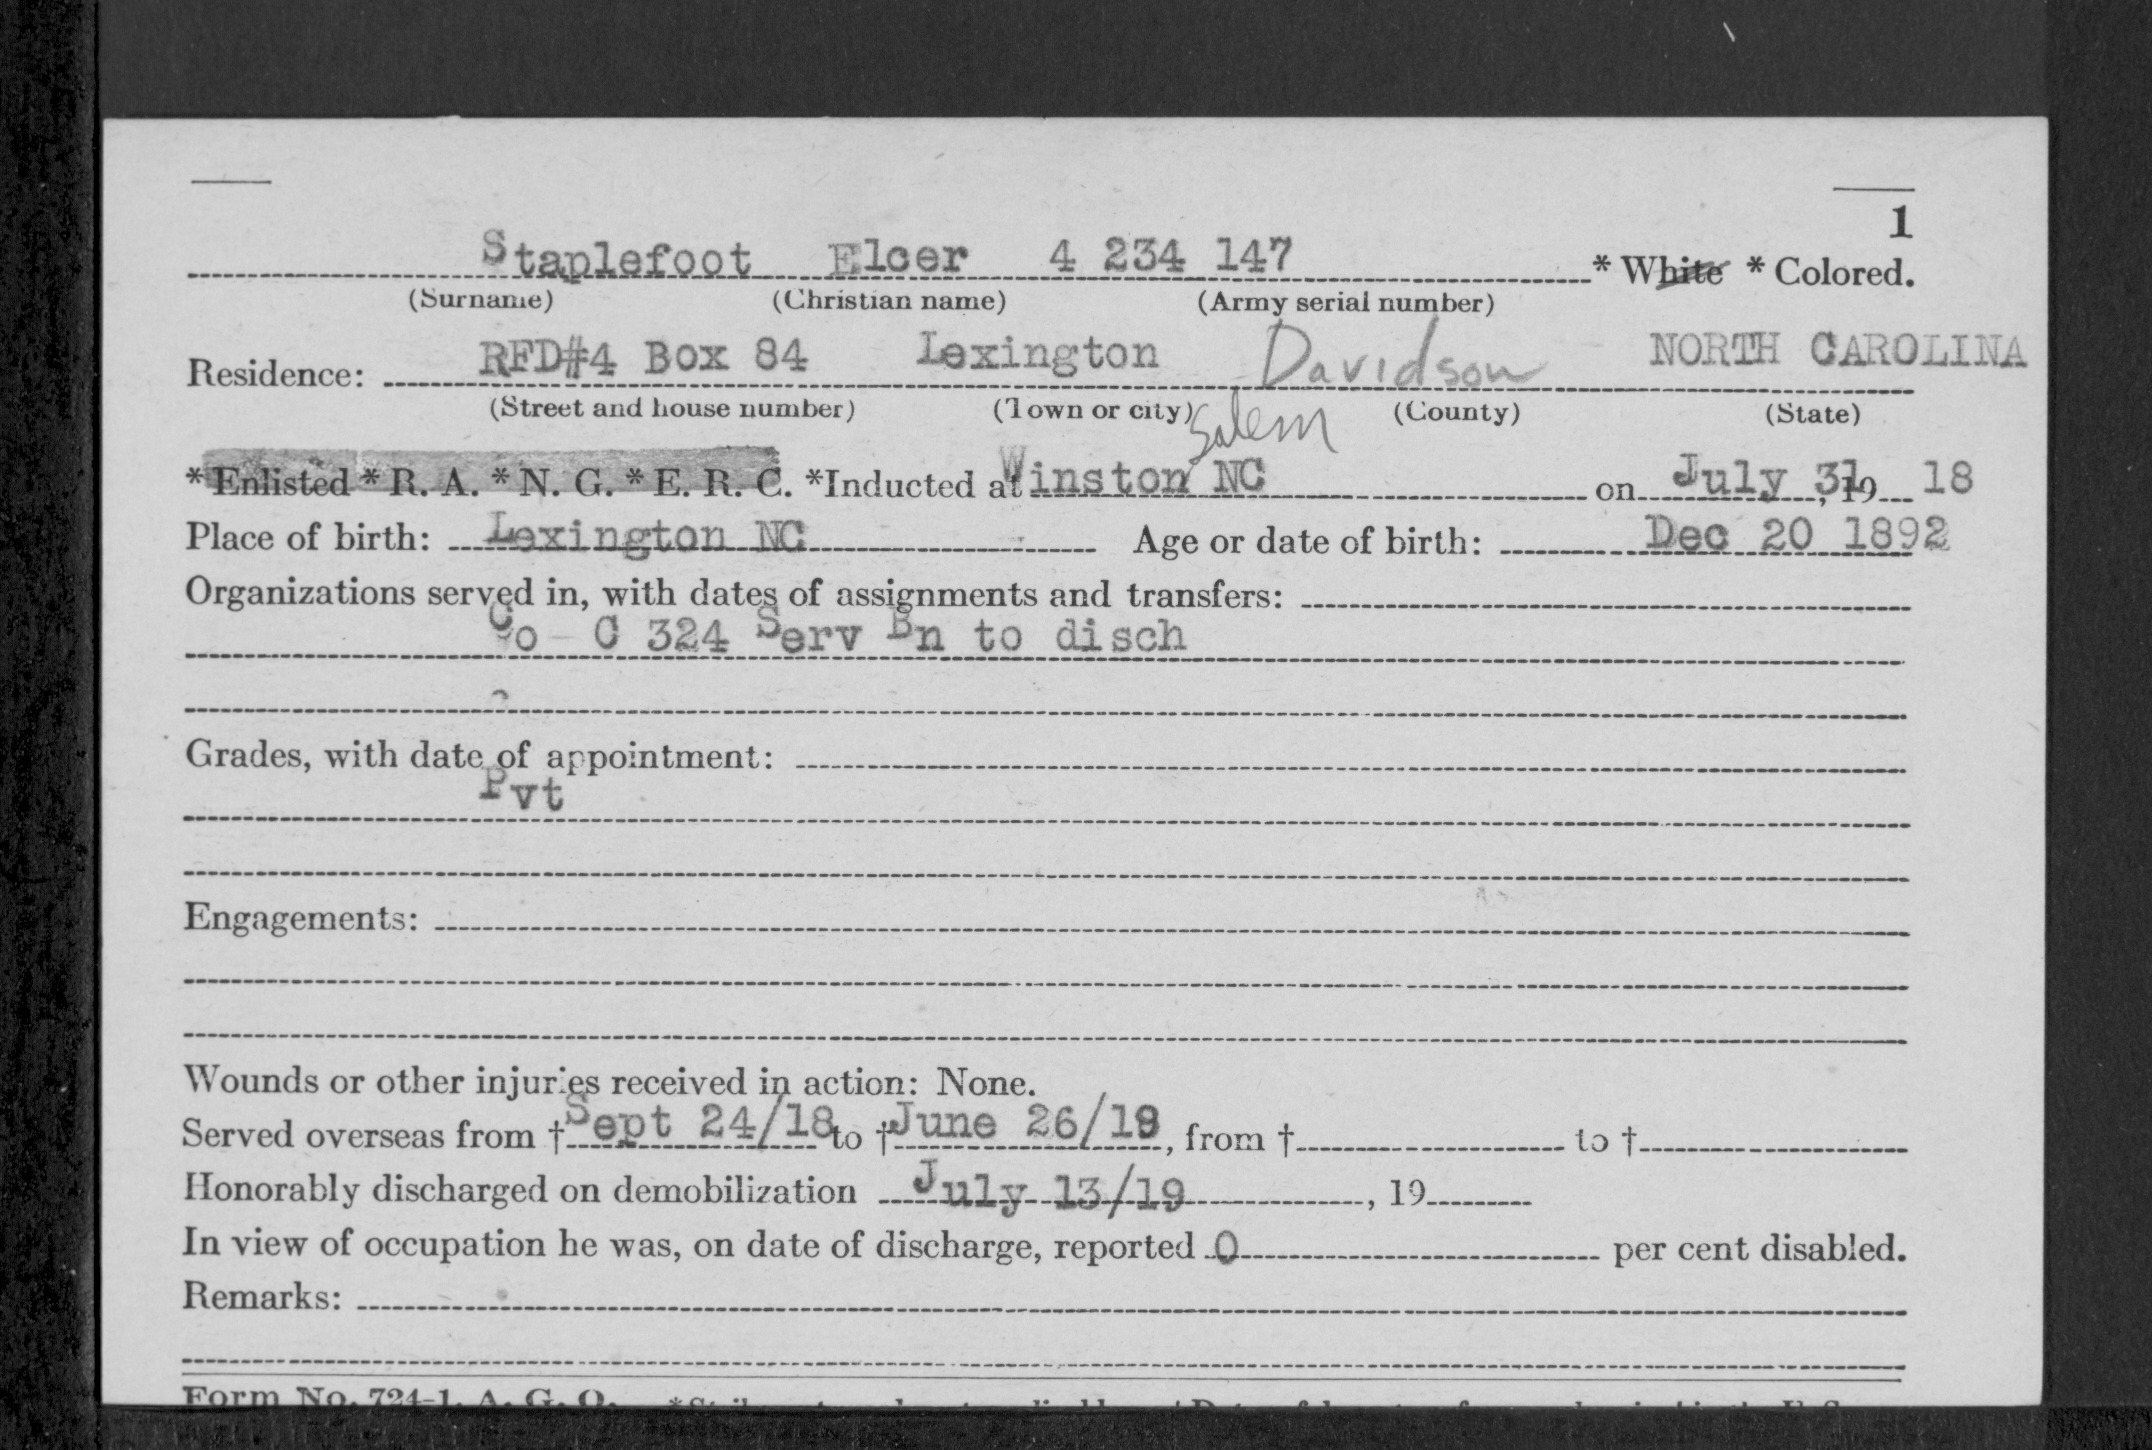 1
Staplefoot Elcer 4 234 147 * White * Colored.
(Surname) (Christian name) (Army serial number)
Residence: RFD#4 Box 84 Lexington Davidson NORTH CAROLINA
(Street and house number) (Town or city) (County) (State)
Salem
*Enlisted *R. A. *N. G. *E. R. C. *Inducted at Winston NC on July 31, 19 18
Place of birth: Lexington NC Age or date of birth: Dec 20 1892
Organizations served in, with dates of assignments and transfers:
Co C 324 Serv Bn to disch
Grades, with date of appointment:
Pvt
Engagements:
Wounds or other injuries received in action: None.
Served overseas from † Sept 24/18 to † June 26/19, from † to †
Honorably discharged on demobilization July 13/19, 19
In view of occupation he was, on date of discharge, reported 0 per cent disabled.
Remarks:
Form No. 724-1, A. G. O.